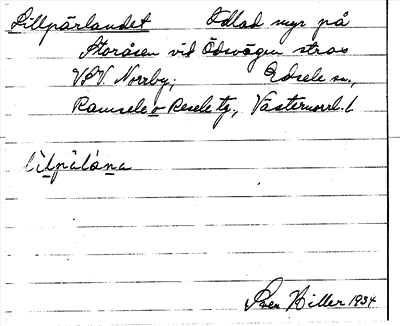 Lillpärlandet Odlad myr på
Storåsen vid Ödsvägen strax
V.S.V. Norrby; Edsele sn.,
Ramsele o Resele tg., Västernorrl. l
Sven Hiller 1934